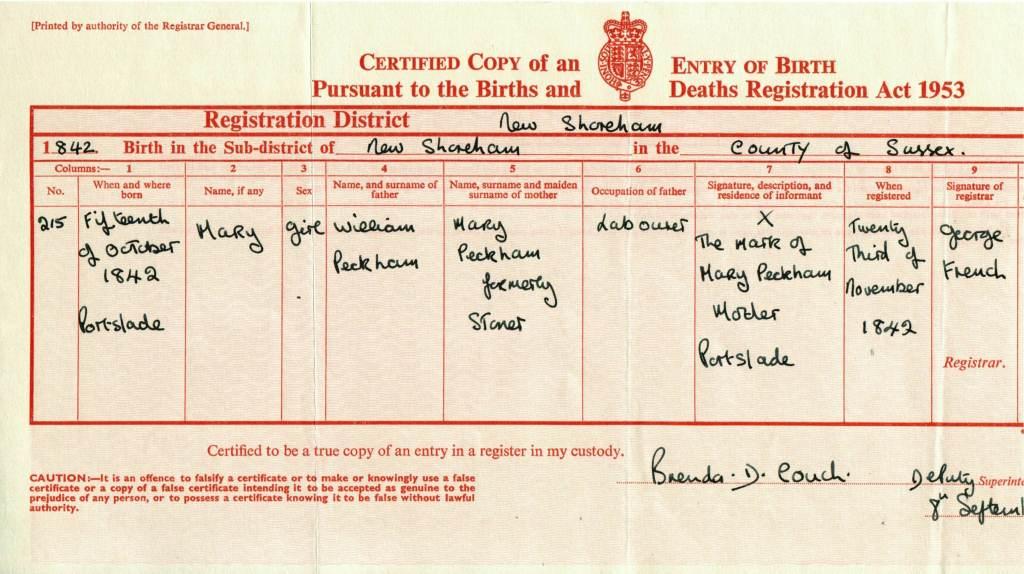 [Printed by authority of the Registrar General.]
CERTIFIED COPY of an ENTRY OF BIRTH
Pursuant to the Births and Deaths Registration Act 1953
Registration District New Shoreham
1842. Birth in the Sub-district of New Shoreham in the County of Sussex.
Columns:— 1 2 3 4 5 6 7 8 9
No. When and where born Name, if any Sex Name, and surname of father Name, surname and maiden surname of mother Occupation of father Signature, description, and residence of informant When registered Signature of registrar
215
Fifteenth
of October
1842
Portslade
Mary
girl
William
Peckham
Mary
Peckham
formerly
Stoner
Labourer
X
The mark of
Mary Peckham
Mother
Portslade
Twenty
Third of
November
1842
George
French
Registrar.
Certified to be a true copy of an entry in a register in my custody.
CAUTION:—It is an offence to falsify a certificate or to make or knowingly use a false
certificate or a copy of a false certificate intending it to be accepted as genuine to the
prejudice of any person, or to possess a certificate knowing it to be false without lawful
authority.
Brenda. D. Couch.
Deputy Superint
8th Septem